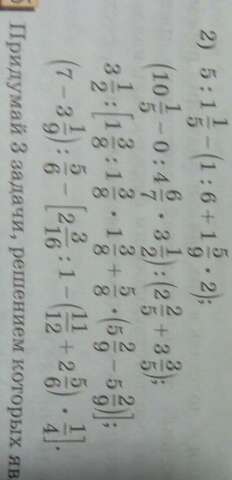 2) 5 : 1 1/5 − (1 : 6 + 1 5/9 · 2);
(10 1/5 − 0 : 4 6/7 · 3 1/2) : (2 2/5 + 3 3/5);
3 1/2 : [1 3/8 : 1 3/8 · 1 3/8 + 5/8 · (5 2/9 − 5 2/9)];
(7 − 3 1/9) : 5/6 − [2 3/16 : 1 − (11/12 + 2 5/6) · 1/4].
Придумай 3 задачи, решением которых яв